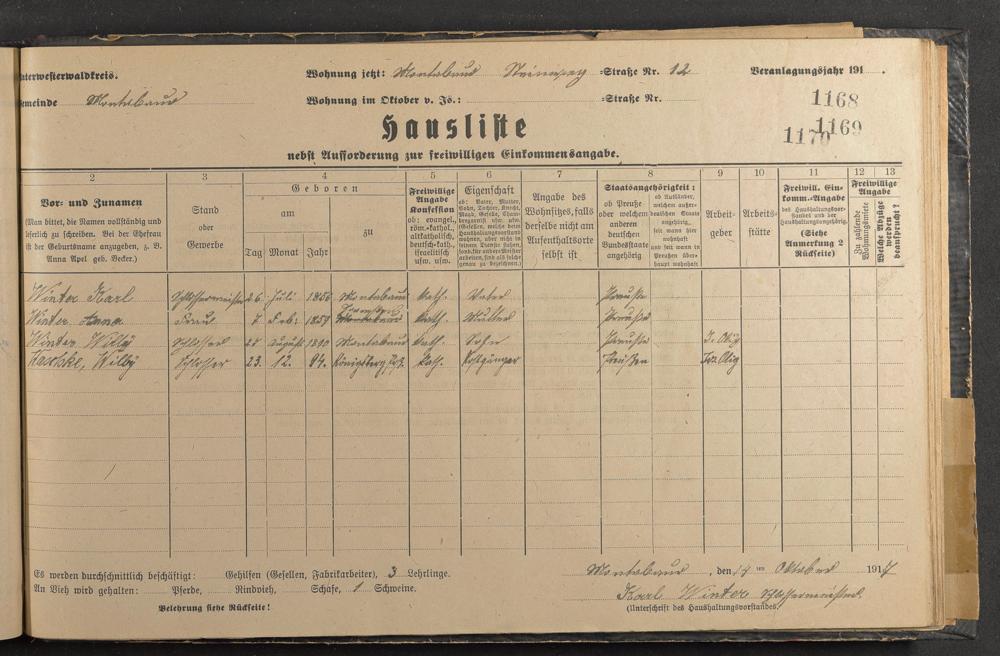 nterwesterwaldkreis. Wohnung jetzt: Montabaur Steinweg =Straße Nr. 12 Veranlagungsjahr 191 .
emeinde Montabaur Wohnung im Oktober v. Js.: =Straße Nr. 1168
1169
1170
Hausliste
nebst Aufforderung zur freiwilligen Einkommensangabe.
2 3 4 5 6 7 8 9 10 11 12 13
Vor- und Zunamen
(Man bittet, die Namen vollständig und
leserlich zu schreiben. Bei der Ehefrau
ist der Geburtsname anzugeben, z. B.
Anna Apel geb. Becker.)
Stand
oder
Gewerbe
Geboren
am
zu
Tag Monat Jahr
Freiwillige
Angabe
Konfession
ob: evangel.,
röm.-kathol.,
altkatholisch,
deutsch-kath.,
israelitisch
usw. usw.
Eigenschaft
ob: Vater, Mutter,
Sohn, Tochter, Knecht,
Magd, Geselle,
Angabe des
Wohnsitzes, falls
derselbe nicht am
Aufenthaltsorte
selbst ist
Staatsangehörigkeit:
ob Preuße
oder welchem
anderen
deutschen
Bundesstaate
angehörig
ob Ausländer,
welchem außer-
deutschen Staate
angehörig,
seit wann hier
wohnhaft
und seit wann in
Preußen über-
haupt wohnhaft
Arbeit-
geber
Arbeits-
stätte
Freiwill. Ein-
komm.-Angabe
des Haushaltungsvor-
standes und der
Haushaltungsangehörig.
(Siehe
Anmerkung 2
Rückseite)
Freiwillige
Angabe
Zu zahlende
Wohnungsmiete
Welche Abzüge
werden
beansprucht?
Winter Karl Schlossermeister 26 Juli 1856 Montabaur kath. Vater Preuße
Winter Anna Frau 7 Feb. 1859 Montabaur kath. Mutter Preuße
Winter Willy Schlosser August 1890 Montabaur kath. Sohn Preuße
Willy Schlosser 23. 12. 94. Königsberg Kath. Kostgänger Preußen
Es werden durchschnittlich beschäftigt: Gehilfen (Gesellen, Fabrikarbeiter), 3 Lehrlinge.
An Vieh wird gehalten: Pferde, Rindvieh, Schafe, 1 Schweine.
Belehrung siehe Rückseite!
Montabaur, den ten Oktober 1917
Karl Winter Schlossermeister
(Unterschrift des Haushaltungsvorstandes.)